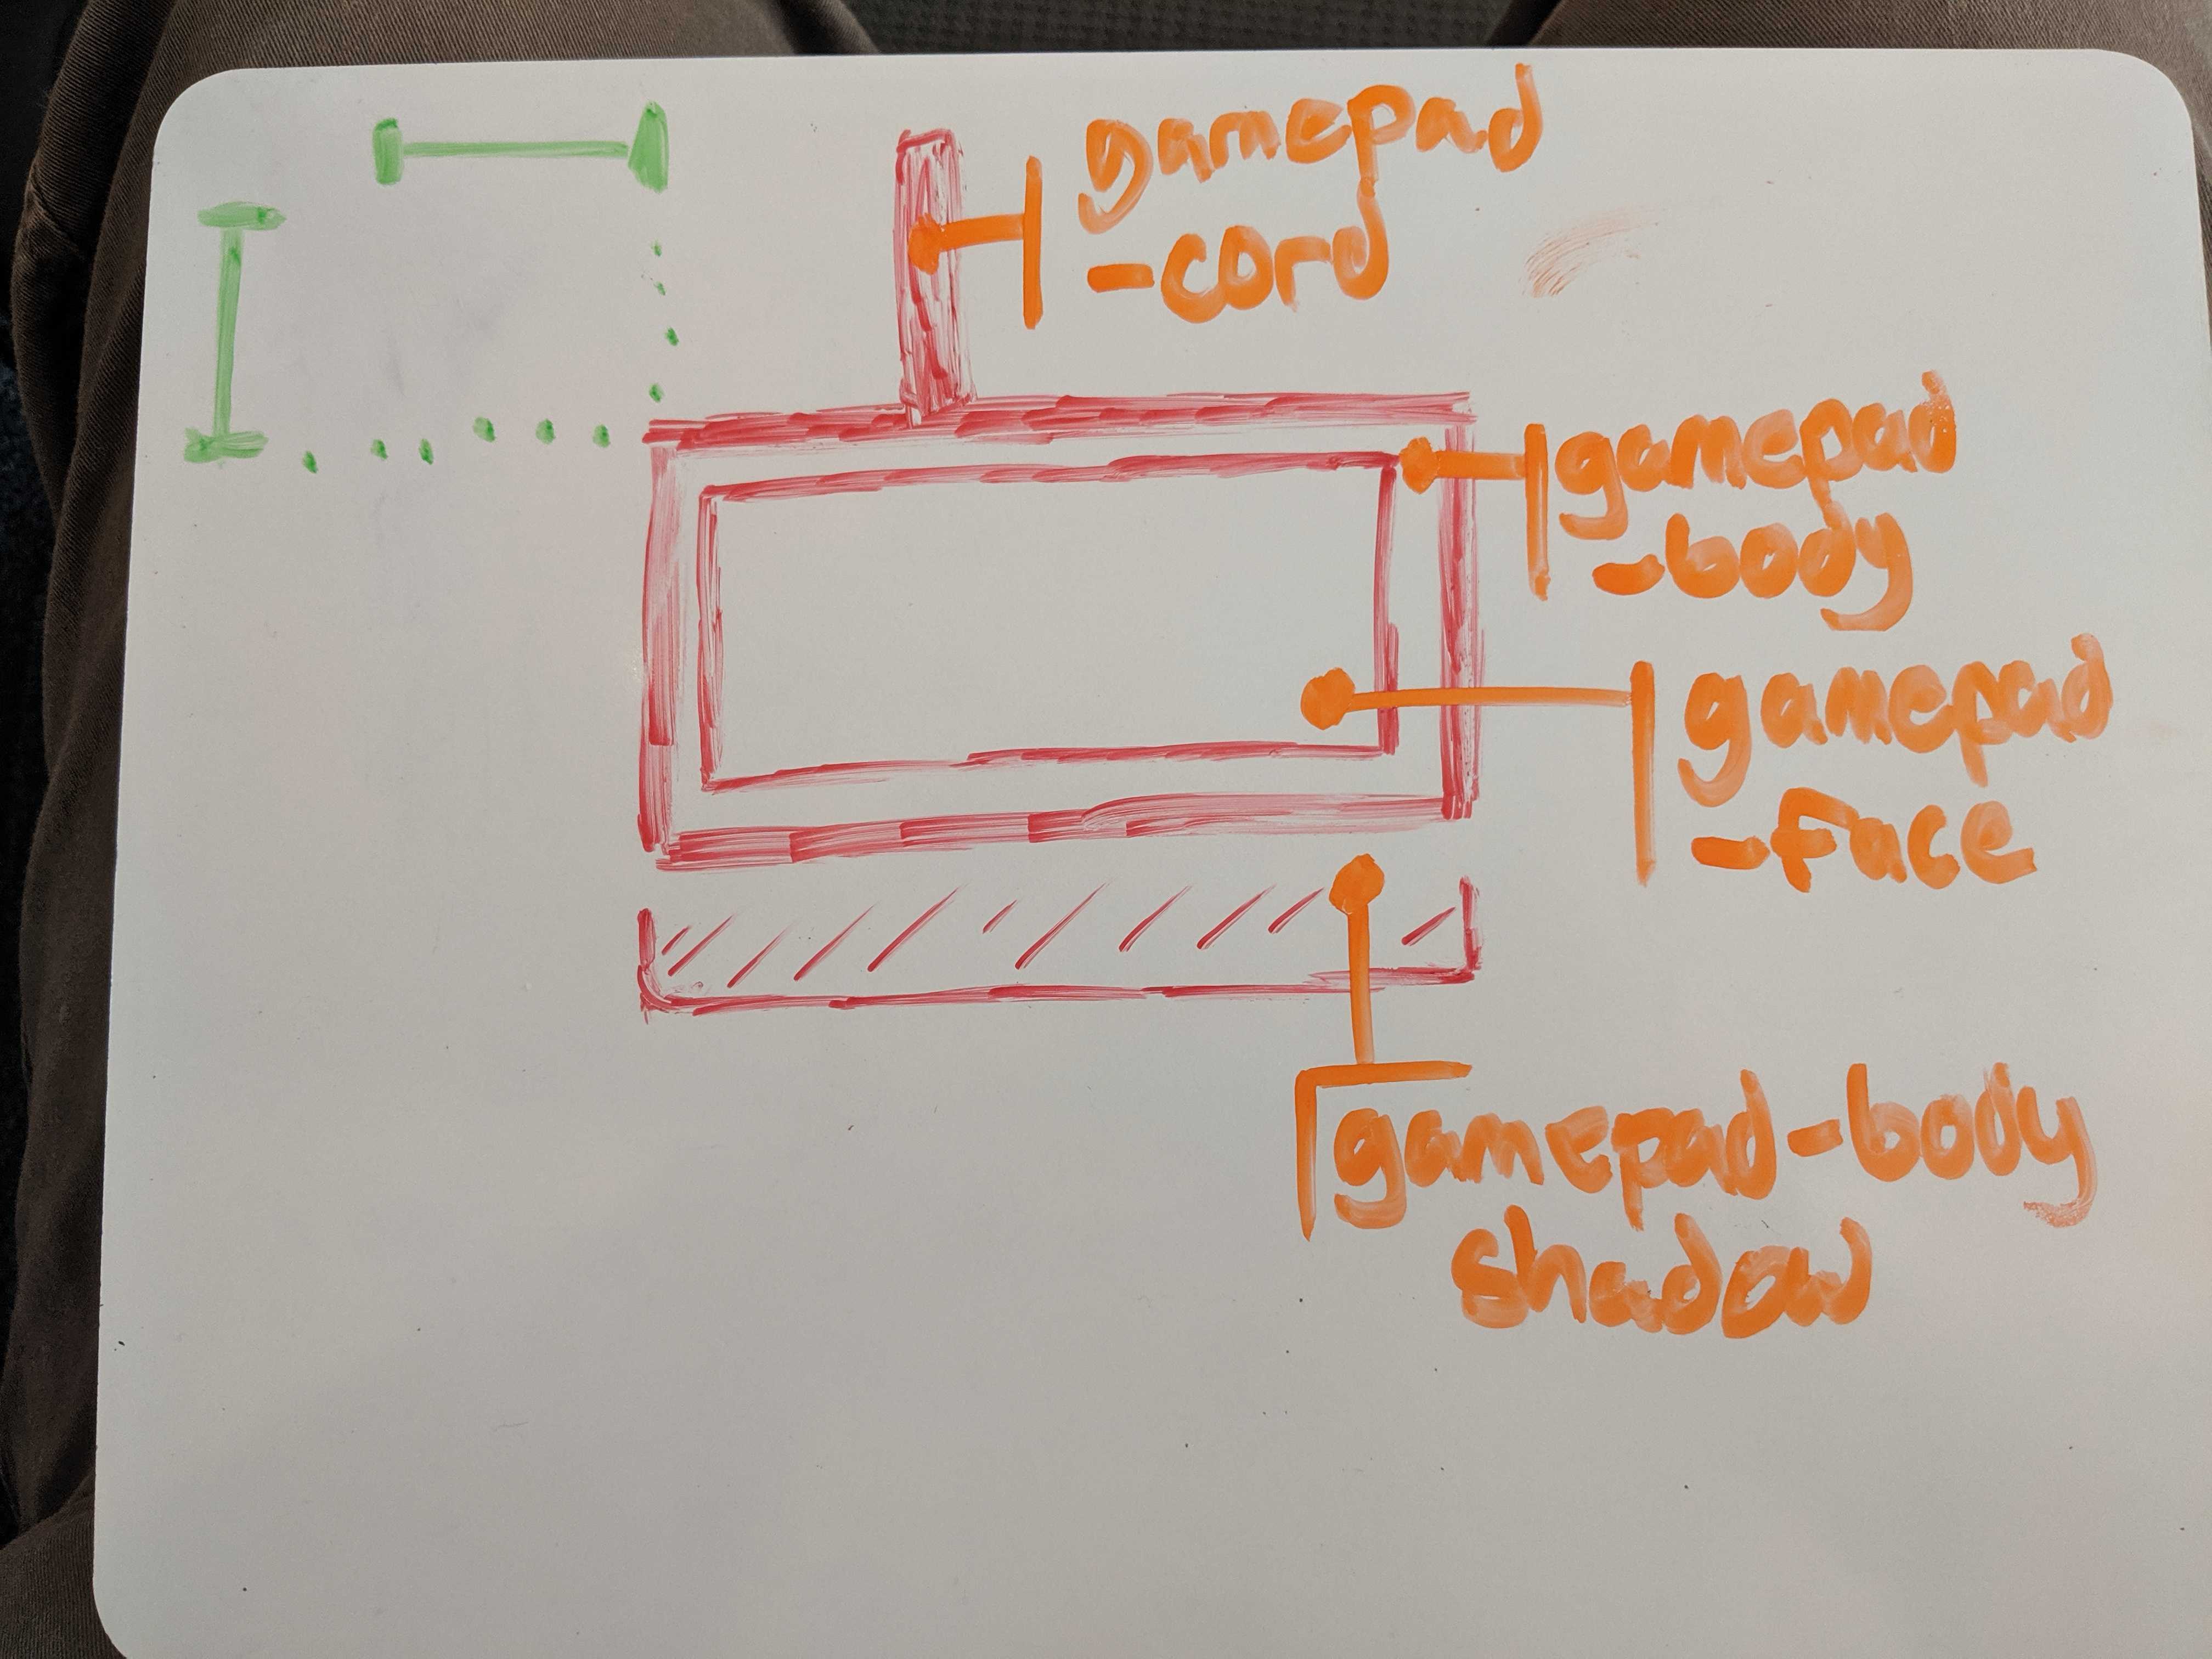 gamepad
-cord
gamepad
-body
gamepad
-face
gamepad-body
shadow